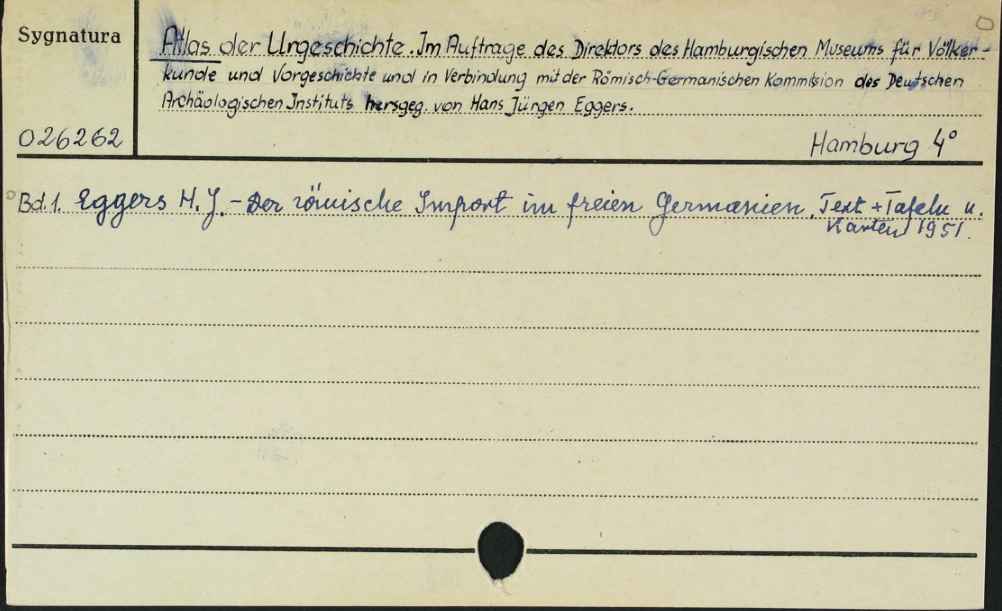 Sygnatura
026262
Atlas der Urgeschichte. Im Auftrage des Direktors des Hamburgischen Museums für Völker-
kunde und Vorgeschichte und in Verbindung mit der Römisch-Germanischen Kommission des Deutschen
Archäologischen Instituts hersgeg. von Hans Jürgen Eggers.
Hamburg 4°
Bd.1. Eggers H.J. - Der römische Import im freien Germanien. Text + Tafeln u.
Karten 1951.